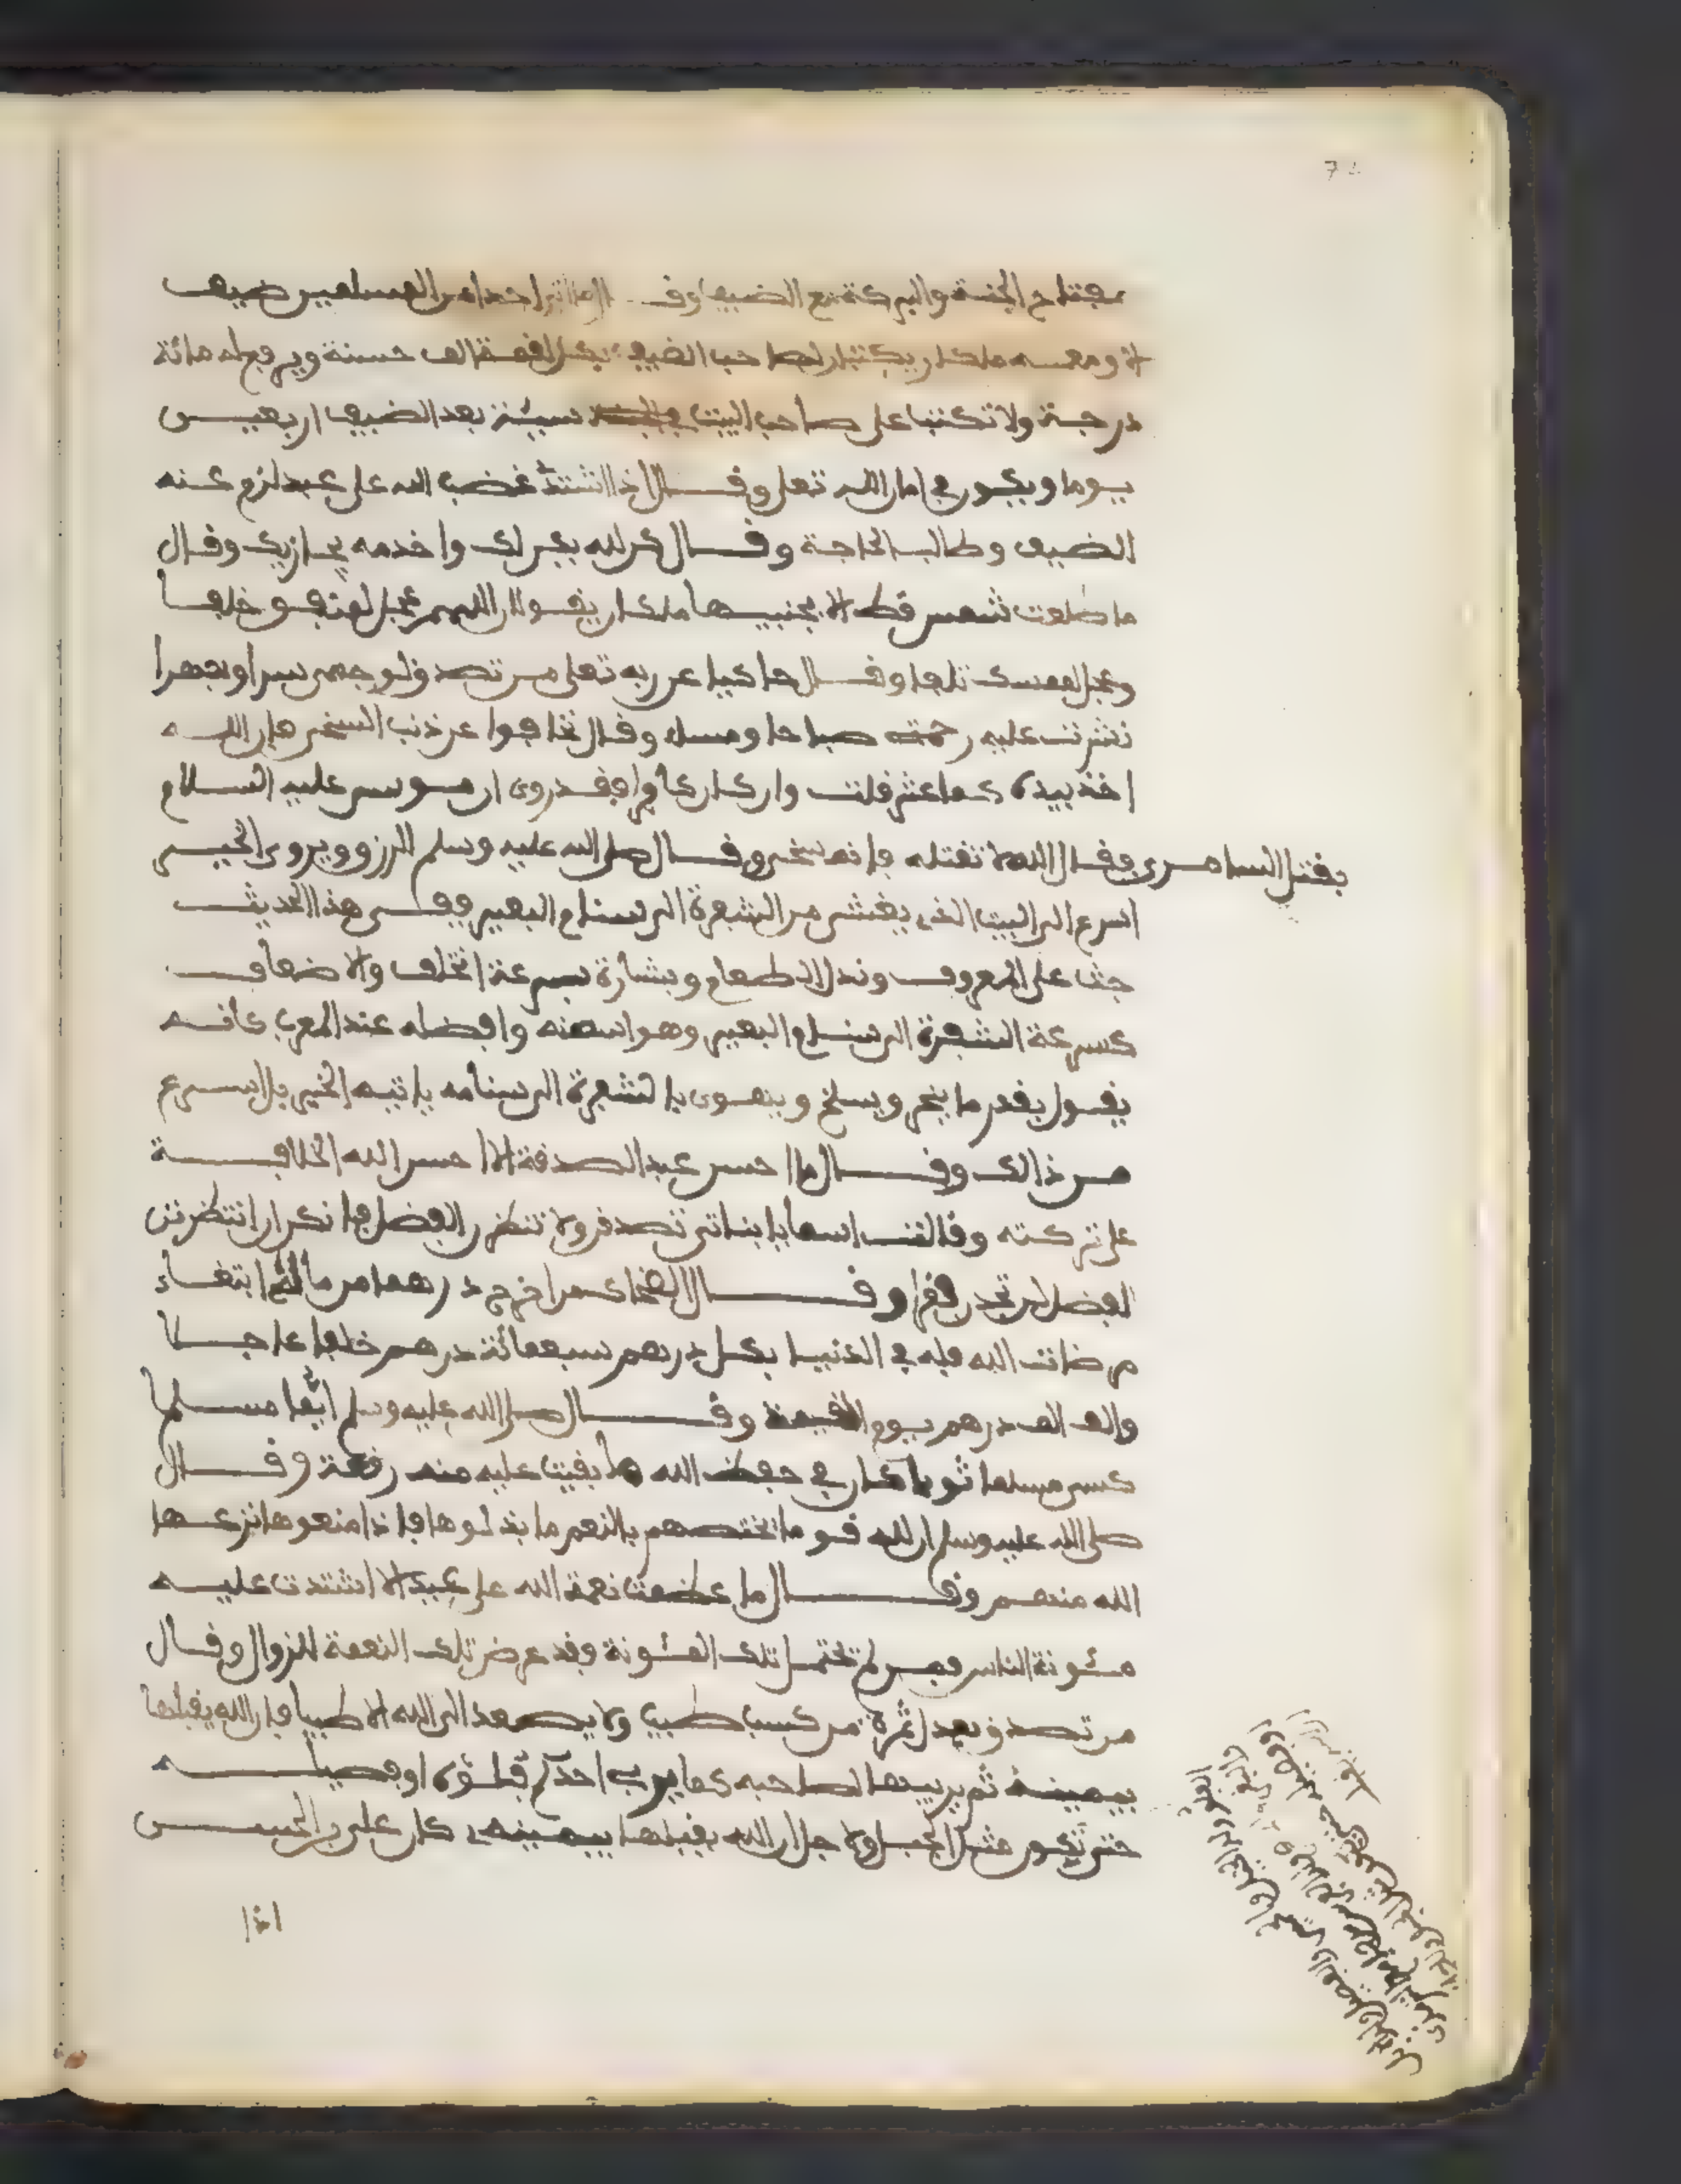 مفتاح الجنة والبركة مع الضيف وقال ما اتى احدا من المسلمين ضيف
الا ومعه ملكان يكتبان لصاحب الضيف بكل لقمة الف حسنة ويرفع له مائة
درجة ولا تكتب على صاحب البيت سيئة بعد الضيف اربعين
يوما ويكون في امان الله تعلى وقال اذا اشتد غضب الله على عبد لزم عنه
الضيف وطالب الحاجة وقال كن لله يكن لك واخدمه يجازيك وقال
ما طلعت شمس قط الا بجنبيها ملكان يقولان اللهم عجل لمنفق خلفا
وعجل لممسك تلفا وقال حاكيا عن ربه تعلى من تصدق لوجهي سرا وجهرا
نشرت عليه رحمتي صباحا ومساء وقال تجافوا عن ذنب السخي فان الله
اخذ بيده كما عثر قلت وان كان كافرا فقد روي ان موسى عليه السلام
بقتل السامري فقال الله لا تقتله فانه سخي وقال صلى الله عليه وسلم الرزق ويروى الخير
اسرع الى البيت الذي يغشى من الشفرة الى سنام البعير ففي هذا الحديث
حث على المعروف وبذل الطعام وبشارة بسرعة الخلف والاضعاف
كسرعة الشفرة الى سنام البعير وهو اسمنه وافضله عند العرب كانه
يقول بقدر ما ينحر ويسلخ ويهوي بالشفرة الى سنامه ياتيه الخير بل اسرع
من ذالك وقال ما احسن عبد الصدقة الا احسن الله الخلافة
على تركته وقالت اسما يا بناتي تصدقن ولا تنتظرن الفضل فانكن ان انتظرتن
الفضل لن تجدن وقال الضحاك من اخرج درهما من ماله ابتغاء
مرضات الله فله في الدنيا بكل درهم سبعمائة درهم خلفا عاجلا
والف الف درهم يوم القيمة وقال صلى الله عليه وسلم ايما مسلم
كسى مسلما ثوبا كان في حفظ الله ما بقيت عليه منه رقعة وقال
صلى الله عليه وسلم ان لله قوما يختصهم بالنعم ما بذلوها فاذا منعوها نزعها
الله منهم وقال ما عظمت نعمة الله على عبد الا اشتدت عليه
مئونة الناس فمن لم يحتمل تلك المئونة فقد عرض تلك النعمة للزوال وقال
من تصدق بعدل تمرة من كسب طيب ولا يصعد الى الله الا طيبا فان الله يقبلها
بيمينه ثم يربيها لصاحبه كما يربي احدكم فلوه او فصيله
حتى تكون مثل الجبل ولاجل ان الله يقبلها بيمينه كان علي بن الحسين
اذا